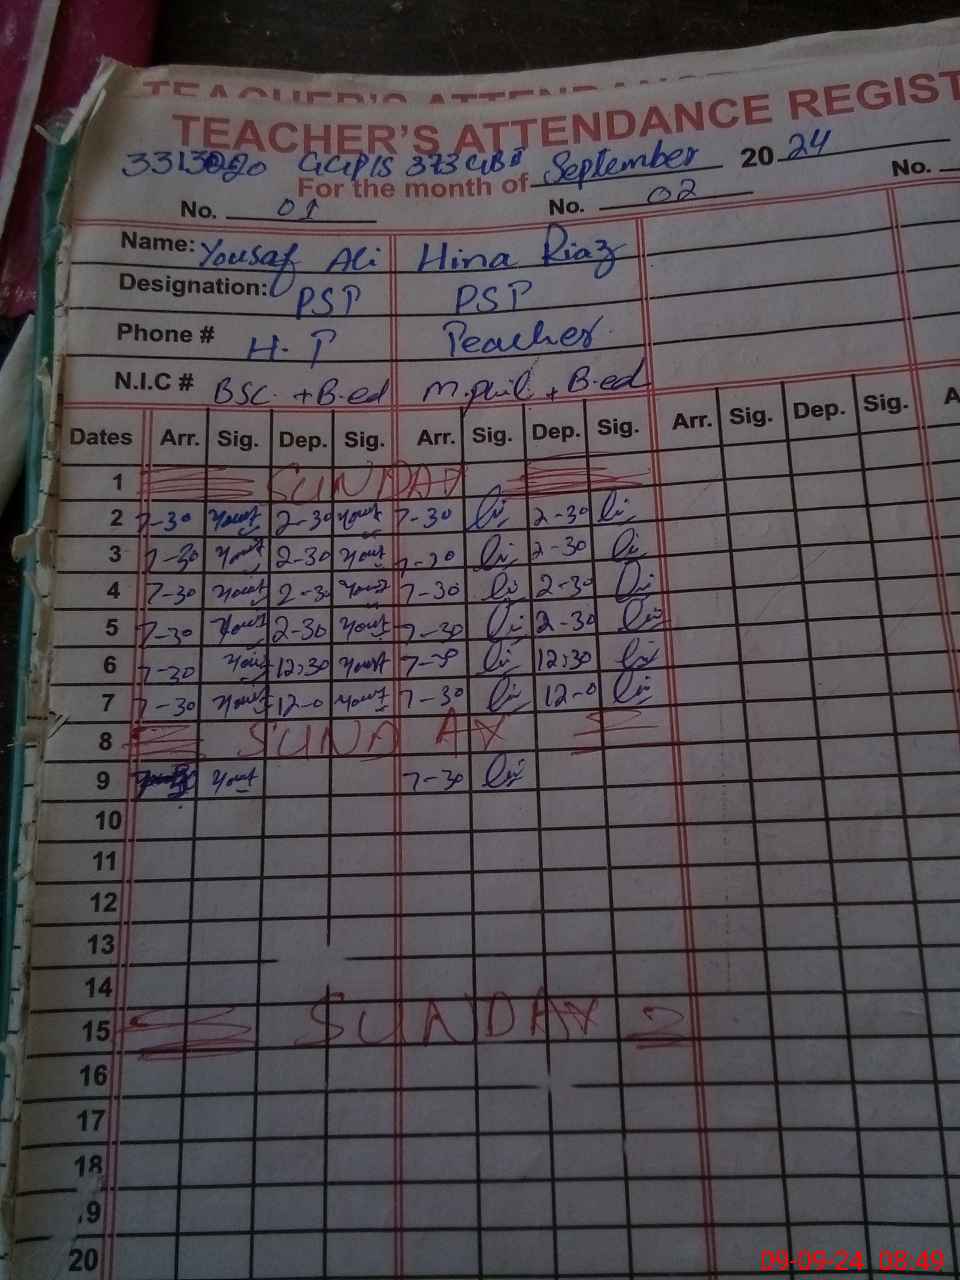 TEACHER'S ATTENDANCE REGIST
GGPIS 373 GB September 20 24
For the month of
No. 01 No. 02 No.
Name: Yousaf Ali Hina Riaz
Designation: PST PST
Phone # H. T Teacher
N.I.C # BSC. + B.ed M.phil + B.ed
Dates Arr. Sig. Dep. Sig. Arr. Sig. Dep. Sig. Arr. Sig. Dep. Sig. A
1 SUNDAY
2 7-30 Yousf 2-30 Yousf 7-30 2-30
3 7-30 Yousf 2-30 Yousf 7-30 2-30
4 7-30 Yousf 2-30 Yousf 7-30 2-30
5 7-30 Yousf 2-30 Yousf 7-30 2-30
6 7-30 Yousf 12,30 Yousf 12,30
7 7-30 Yousf 12-0 Yousf 7-30 12-0
8 SUNDAY
9 Yousf 7-30
10
11
12
13
14
15 SUNDAY
16
17
18
19
20
09-09-24 08:49